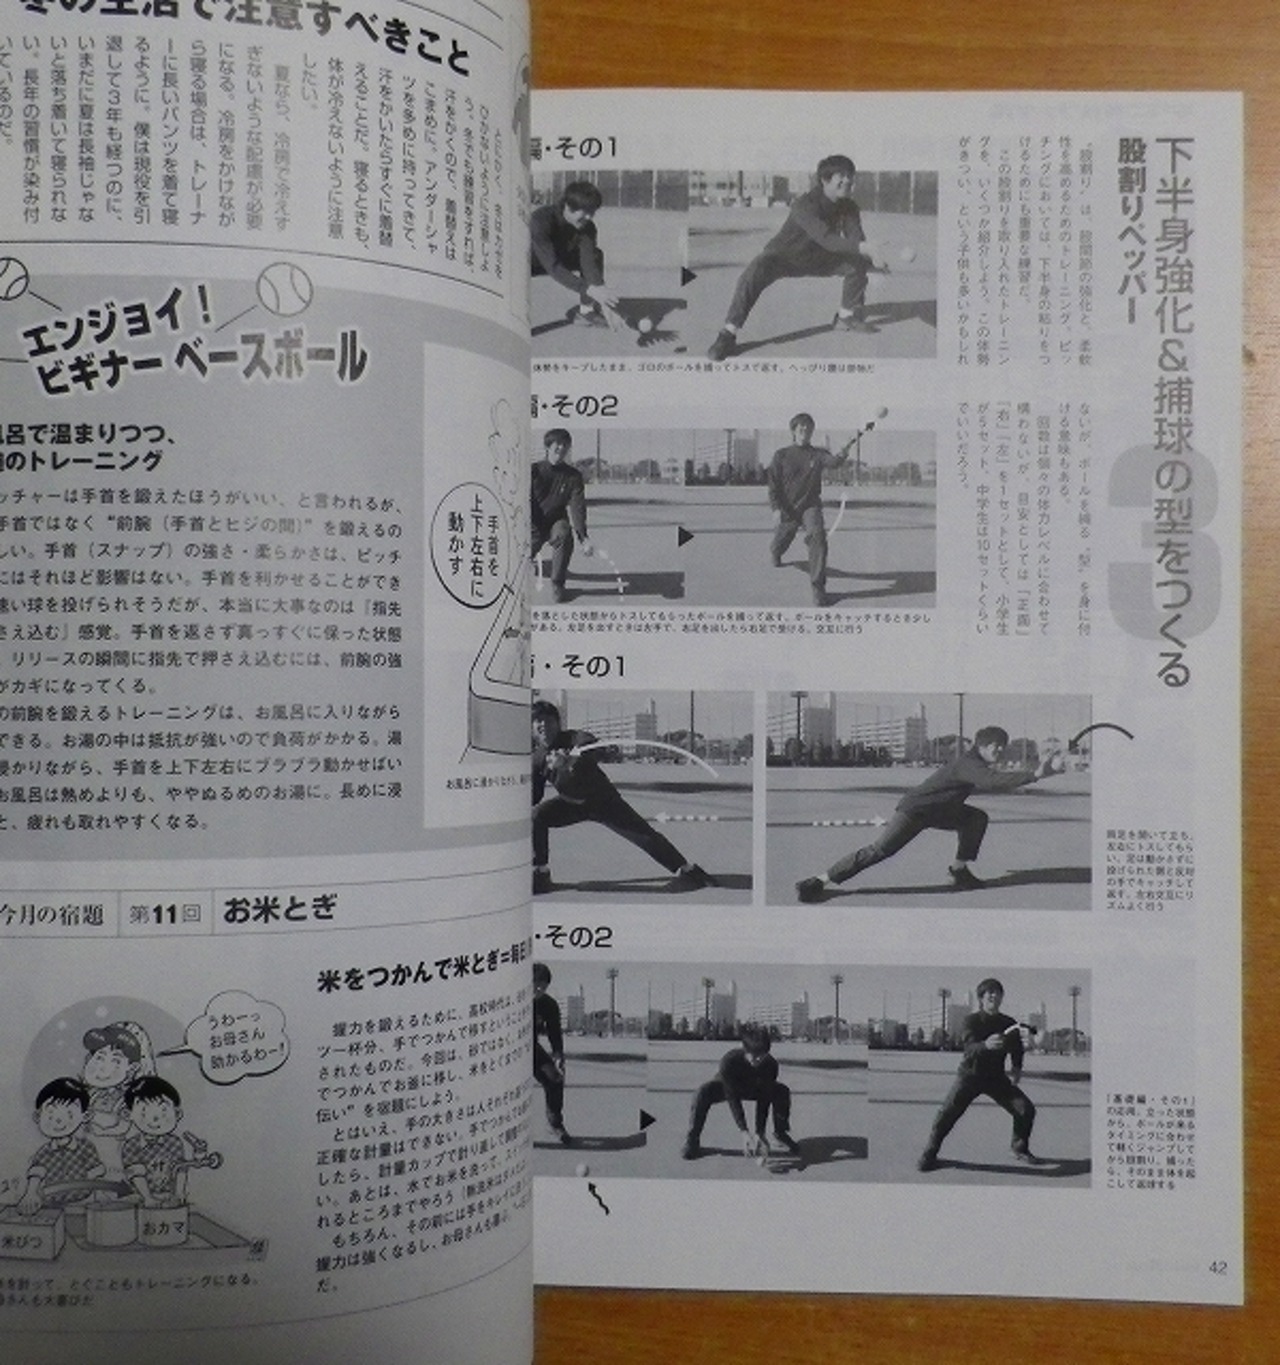 冬の生活で注意すべきこと
汗をかくので、着替えは
こまめに。アンダーシャ
ツを多めに持ってきて、
汗をかいたらすぐに着替
えることだ。寝るときも、
体が冷えないように注意
したい。
夏なら、冷房で冷えす
ぎないような配慮が必要
になる。冷房をかけなが
ら寝る場合は、トレーナ
ーに長いパンツを着て寝
るように。僕は現役を引
退して3年も経つのに、
いまだに夏は長袖じゃな
いと落ち着いて寝られな
い。長年の習慣が染み付
いているのだ。
エンジョイ!
ビギナー ベースボール
呂で温まりつつ、
のトレーニング
ッチャーは手首を鍛えたほうがいい、と言われるが、
手首ではなく“前腕(手首とヒジの間)”を鍛えるの
しい。手首(スナップ)の強さ・柔らかさは、ピッチ
にはそれほど影響はない。手首を利かせることができ
速い球を投げられそうだが、本当に大事なのは『指先
さえ込む』感覚。手首を返さず真っすぐに保った状態
、リリースの瞬間に指先で押さえ込むには、前腕の強
がカギになってくる。
の前腕を鍛えるトレーニングは、お風呂に入りながら
できる。お湯の中は抵抗が強いので負荷がかかる。湯
浸かりながら、手首を上下左右にブラブラ動かせばい
お風呂は熱めよりも、ややぬるめのお湯に。長めに浸
と、疲れも取れやすくなる。
手首を
上下左右に
動かす
お風呂に浸かりながら、
今月の宿題 第11回 お米とぎ
米をつかんで米とぎ=毎日
握力を鍛えるために、高校時代は、
ツ一杯分、手でつかんで移すということ
されたものだ。今回は、砂ではなく、
でつかんでお釜に移し、米をとぐまで
伝い”を宿題にしよう。
とはいえ、手の大きさは人それぞれ
正確な計量はできない。手でつかんで
したら、計量カップで計り直して
い。あとは、水でお米を洗って、
れるところまでやろう
もちろん、その前には手をキレイに
握力は強くなるし、お母さんも喜ぶ。
だ。
うわーっ
お母さん
助かるわー!
米びつ
おカマ
を計って、とぐこともトレーニングになる。
母さんも大喜びだ
3
下半身強化&捕球の型をつくる
股割りペッパー
“股割り”は、股関節の強化と、柔軟
性を高めるためのトレーニング。ピッ
チングにおいては、下半身の粘りをつ
けるためにも重要な練習だ。
この股割りを取り入れたトレーニン
グを、いくつか紹介しよう。この体勢
がきつい、という子供も多いかもしれ
ないが、ボールを捕る“型”を身に付
ける意味もある。
回数は個々の体力レベルに合わせて
構わないが、目安としては「正面」
「右」「左」を1セットとして、小学生
が5セット、中学生は10セットくらい
でいいだろう。
編・その1
体勢をキープしたまま、ゴロのボールを捕ってトスで返す。へっぴり腰は厳禁だ
編・その2
を落とした状態からトスしてもらったボールを捕って返す。ボールをキャッチするとき少し
がある。左足を出すときは左手で、右足を出したら右足で受ける。交互に行う
・その1
両足を開いて立ち、
左右にトスしてもら
い、足は動かさずに
投げられた側と反対
の手でキャッチして
返す。左右交互にリ
ズムよく行う
・その2
「基礎編・その1」
の応用。立った状態
から、ボールが来る
タイミングに合わせ
て軽くジャンプして
から股割り。捕った
ら、そのまま体を起
こして返球する
42